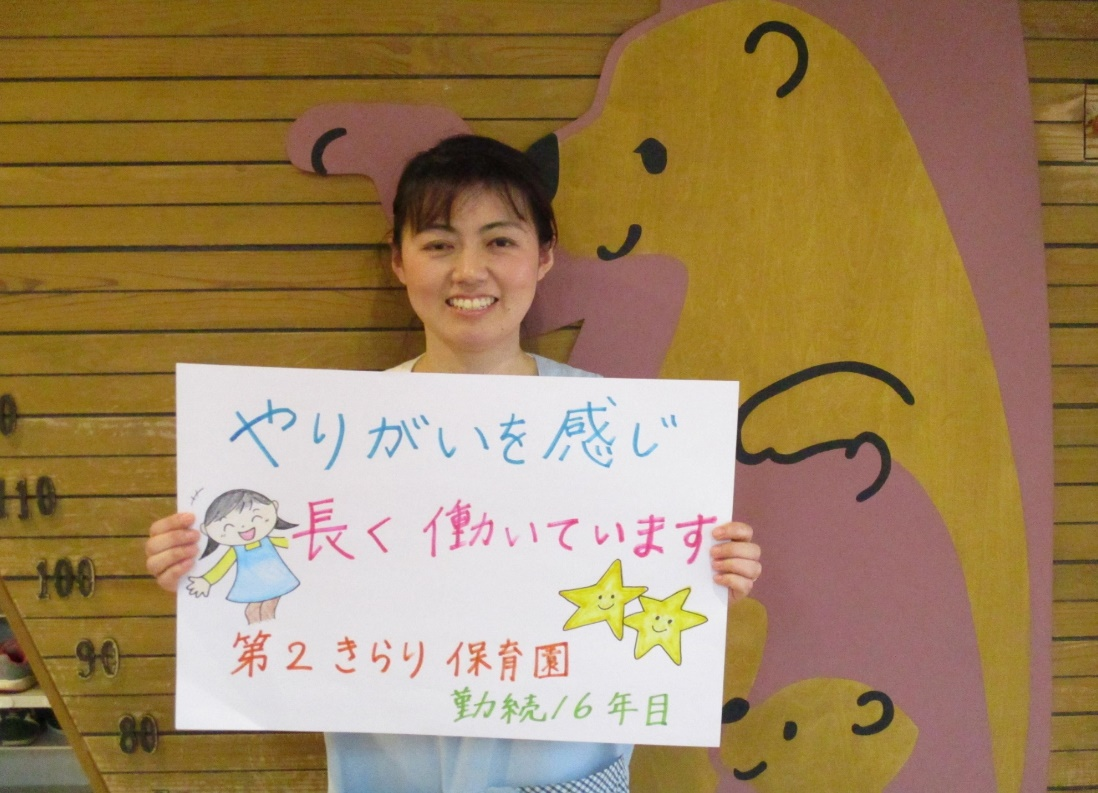 やりがいを感じ
長く働いています
第2きらり保育園
勤続16年目
110
100
90
80